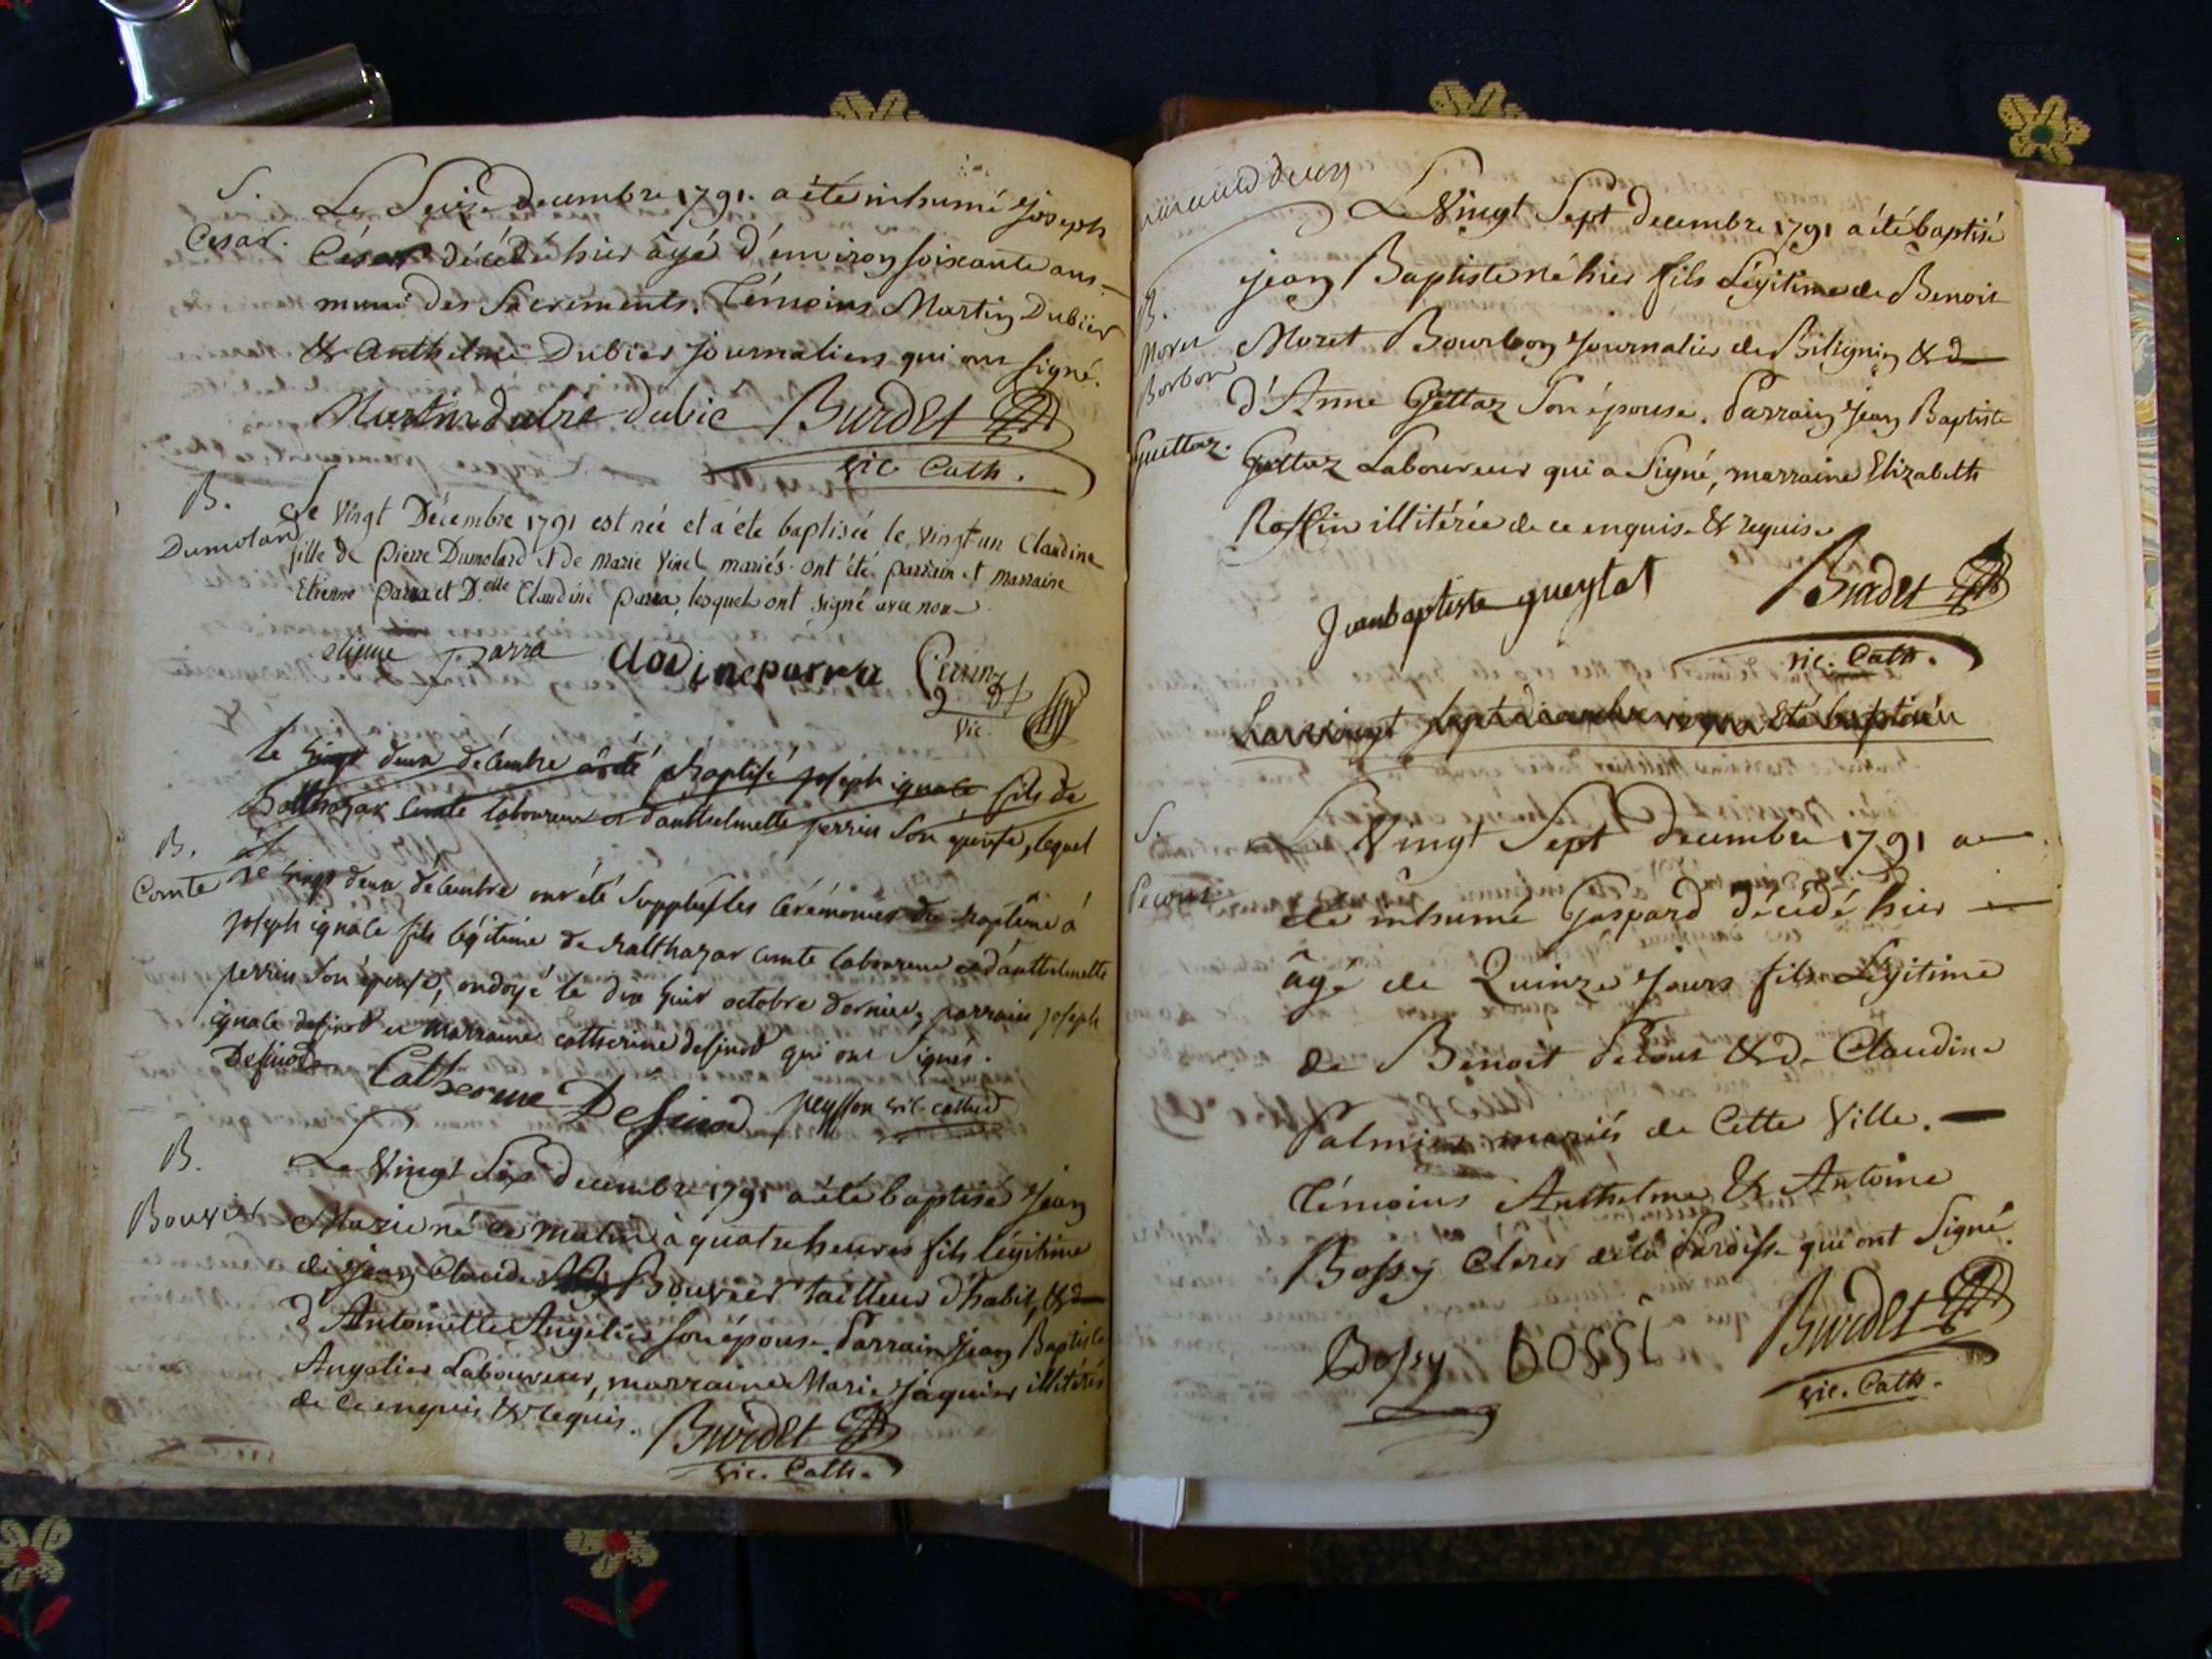 S.
Cesar.
Le Seize decembre 1791. a été inhumé Joseph
César décédé hier âgé d'environ soixante ans
muni des Sacrements. Témoins Martin Dubier
& Anthelme Dubier Journaliers qui ont signé.
Martin dubie dubie Burdet
vic. Cath.
B.
Dumolard
Le Vingt Décembre 1791 est née et a été baptisée le vingt un Claudine
fille de Pierre Dumolard et de Marie Vinel mariés. ont été parrain et marraine
Etienne Parra et D.elle Claudine Parra, lesquels ont signé avec nou
etienne parra clodine parra Perrin
vic.
le vingt deux décembre a été baptisé joseph ignace fils de
Balthazar Comte laboureur et d'anthelmette perrin son épouse, lequel
B.
Comte
le vingt deux décembre ont été Supplées les cérémonies du baptême à
joseph ignace fils légitime de balthazar comte laboureur et d'anthelmette
perrin son épouse, ondoyé le dix huit octobre dernier, parrain joseph
ignace desinod et marraine catherine desinod qui ont signés.
Desinod Catherine Desinod peysson vic. cathed
B.
Bouvier
Le Vingt Six decembre 1791 a été baptisé Jean
Marie né ce matin à quatre heures fils légitime
de Jean Claude Bouvier tailleur d'habit, & d
d'Antoinette Angelier son épouse. Parrain Jean Baptiste
Angelier Laboureur, marraine Marie Jaquier illitérés
de ce enquis & requis.
Burdet
vic. Cath.
Le Vingt Sept decembre 1791 a été baptisé
jean Baptiste né hier fils Légitime de Benoit
B.
Moret
Borbon
Guettaz.
Moret Bourbon Journalier de Billignin & d
d'Anne Gettaz Son épouse. Parrain Jean Baptiste
Gettaz Laboureur qui a Signé, marraine Elizabeth
Roffin illitérée de ce enquise & requise
Jeanbaptiste gueytat Burdet
vic. Cath.
Le vingt sept decembre été baptisé
S.
Pecout
Le Vingt Sept decembre 1791 a
été inhumé Gaspard décédé hier
âgé de Quinze Jours fils Légitime
de Benoit Pecout & de Claudine
Palmier mariés de Cette Ville.
Témoins Anthelme & Antoine
Bossy Clercs de la Paroisse qui ont Signé.
Bossy bossi Burdet
vic. Cath.